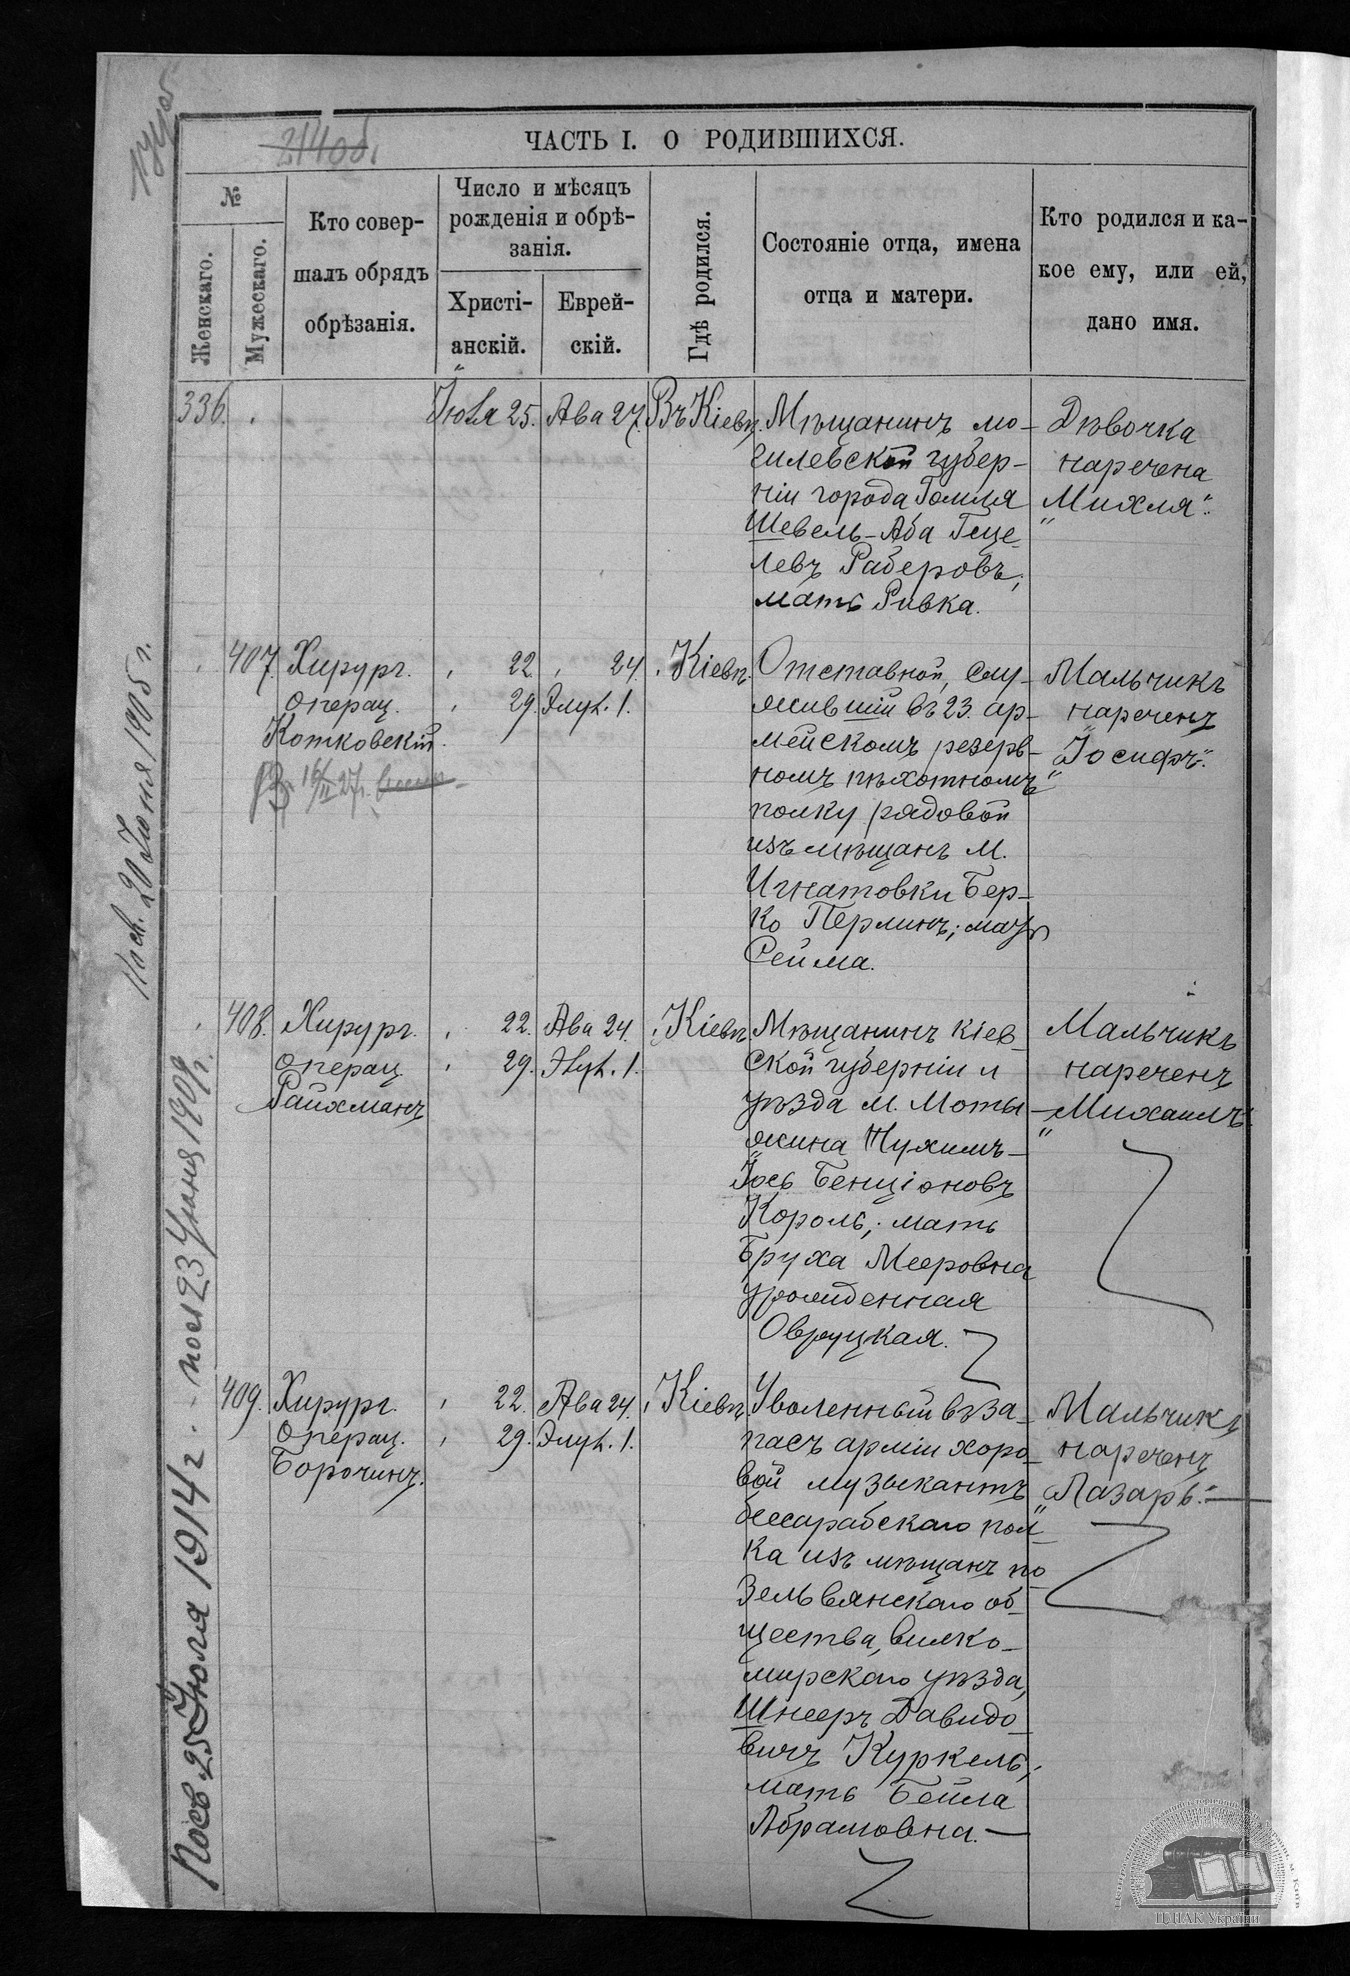 214об.
ЧАСТЬ I. О РОДИВШИХСЯ.
№
Женскаго.
Мужескаго.
Кто совер-
шалъ обрядъ
обрѣзанія.
Число и мѣсяцъ
рожденія и обрѣ-
занія.
Христі-
анскій.
Еврей-
скій.
Гдѣ родился.
Состояніе отца, имена
отца и матери.
Кто родился и ка-
кое ему, или ей,
дано имя.
336.
Іюля 25.
Ава 27.
Въ Кіевѣ.
Мѣщанинъ мо-
гилевской губер-
ніи города Гомля
Шевель-Аба Геце-
левъ Раберовъ;
мать Ривка.
Дѣвочка
наречена
„Михля“.
407.
Хирург.
операц.
Котковскій.
16/II 27г.
„ 22. „ 24.
„ 29. Элул. 1.
„ Кіевѣ.
Отставной, слу-
жившій въ 23. ар-
мейскомъ резерв-
номъ пѣхотномъ
полку рядовой
изъ мѣщанъ м.
Игнатовки Бер-
ко Перлинъ; мать
Сейма.
Мальчикъ
нареченъ
„Іосифъ“.
408.
Хирург.
операц.
Райхманъ
„ 22. Ава 24.
„ 29. Элул. 1.
„ Кіевѣ.
Мѣщанинъ кіев-
ской губерніи и
уѣзда м. Моты-
жина Нухимъ-
Іось Бенціоновъ
Король; мать
Бруха Мееровна
урожденная
Овруцкая.
Мальчикъ
нареченъ
„Михаилъ“.
409.
Хирург.
операц.
Борочинъ.
„ 22. Ава 24.
„ 29. Элул. 1.
„ Кіевѣ.
Уволенный въ за-
пасъ арміи хоро-
вой музыкантъ
бессарабскаго пол-
ка изъ мѣщанъ по-
зельвянскаго об-
щества, вилко-
мирскаго уѣзда,
Шнееръ Давидо-
вичъ Куркель;
мать Бейла
Абрамовна.
Мальчикъ
нареченъ
„Лазарь“.
20 Іюня 1905 г.
23 Іюня 1909 г.
25 Іюля 1914 г.
ЦДІАК України